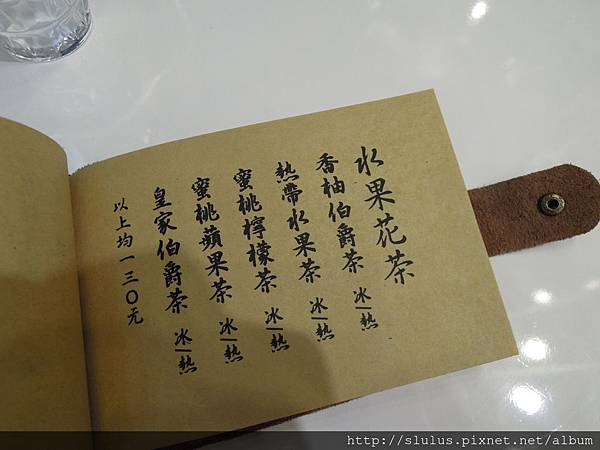 水果花茶
香柚伯爵茶 冰/熱
熱帶水果茶 冰/熱
蜜桃檸檬茶 冰/熱
蜜桃蘋果茶 冰/熱
皇家伯爵茶 冰/熱
以上均一三〇元
http://slulus.pixnet.net/album